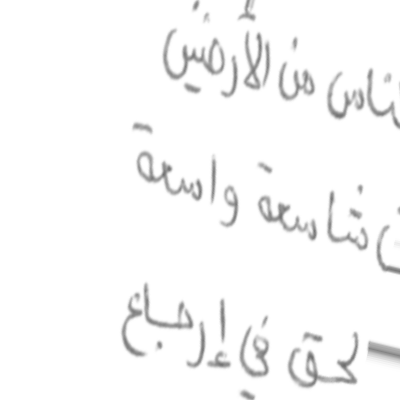 الناس من الأرضين
شاسعة واسعة
لحق في إرجاع